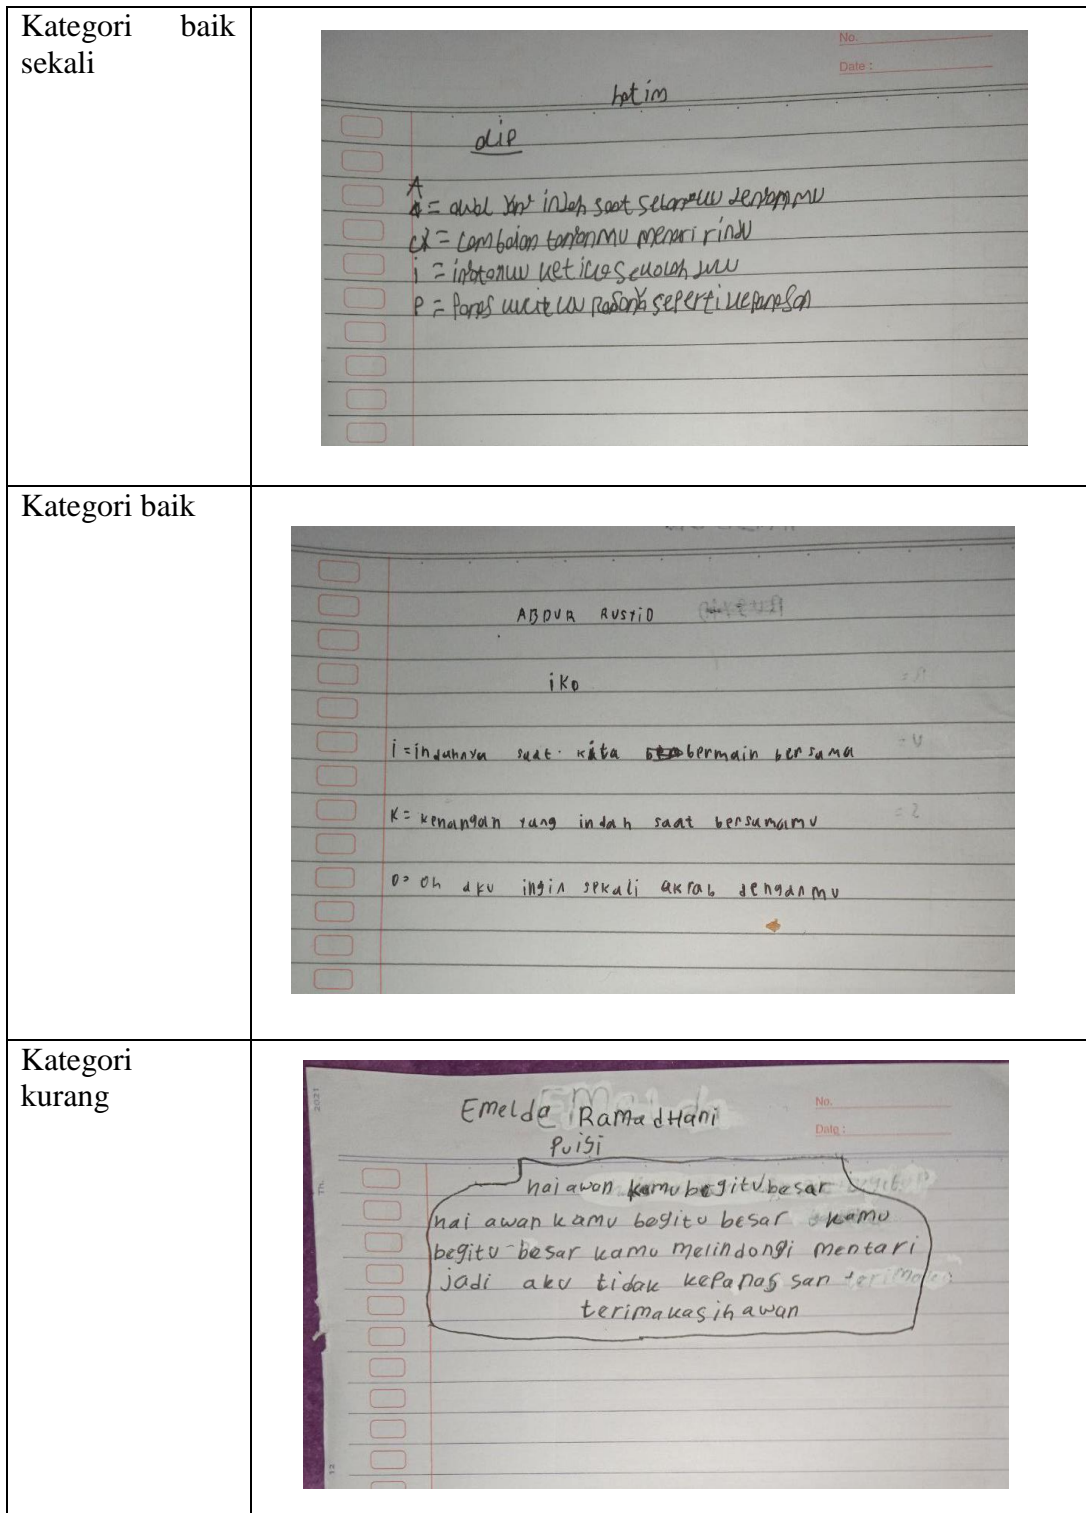 Kategori baik
sekali
No.
Date :
hotim
alip
A
= awal yang indah saat
= lambaian tanganmu menari rindu
i = ketika sekolah
P = Panas kulitku seperti kepanasan
Kategori baik
ABDUR RUSYiD
iKo
i = indahnya saat kita bermain bersama
K = kenangan yang indah saat bersamamu
O = Oh aku ingin sekali akrab denganmu
Kategori
kurang
2021
No.
Date :
Emelda RamadHani
Puisi
hai awan kamu begitu besar
hai awan kamu begitu besar kamu
begitu besar kamu melindongi mentari
jadi aku tidak kepanas san
terimakasih awan
12